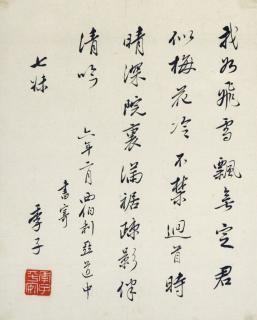 我如飛雪飄無定君
似梅花冷不禁迴首時
晴深院裏滿裾疎影伴
清吟
六年二月西伯利亞道中
書寄
七妹
季子